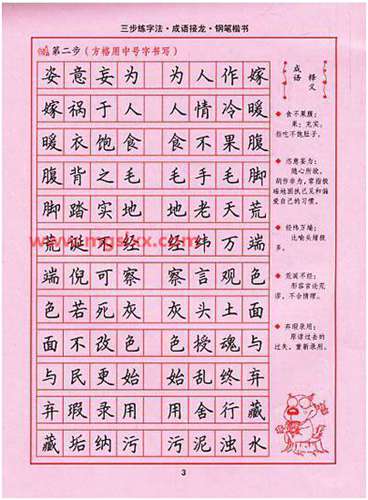 三步练字法·成语接龙·钢笔楷书
第二步(方格用中号字书写)
姿意妄为 为人作嫁
嫁祸于人 人情冷暖
暖衣饱食 食不果腹
腹背之毛 毛手毛脚
脚踏实地 地老天荒
荒诞不经 经纬万端
端倪可察 察言观色
色若死灰 灰头土面
面不改色 色授魂与
与民更始 始乱终弃
弃瑕录用 用舍行藏
藏垢纳污 污泥浊水
成语释义
食不果腹:
果:充实。
指吃不饱肚子。
恣意妄为:
随心所欲,
胡作非为,常指放
着自己的习惯。
经纬万端:
比喻头绪很
多。
荒诞不经:
形容言论荒
谬,不合情理。
弃瑕录用:
原谅过去的
过失,重新录用。
www.mgslxx.com
3